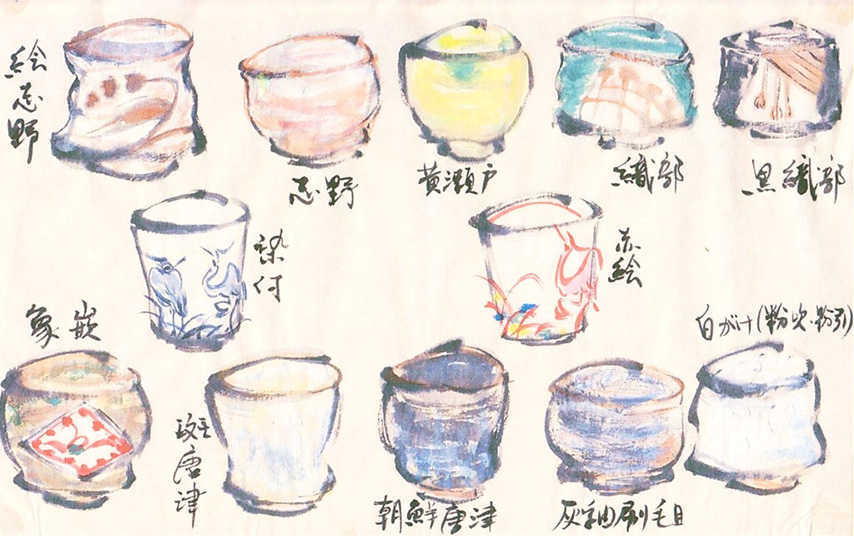 絵志野
志野
黄瀬戸
織部
黒織部
染付
赤絵
象嵌
白がけ(粉吹・粉引)
斑唐津
朝鮮唐津
灰釉刷毛目